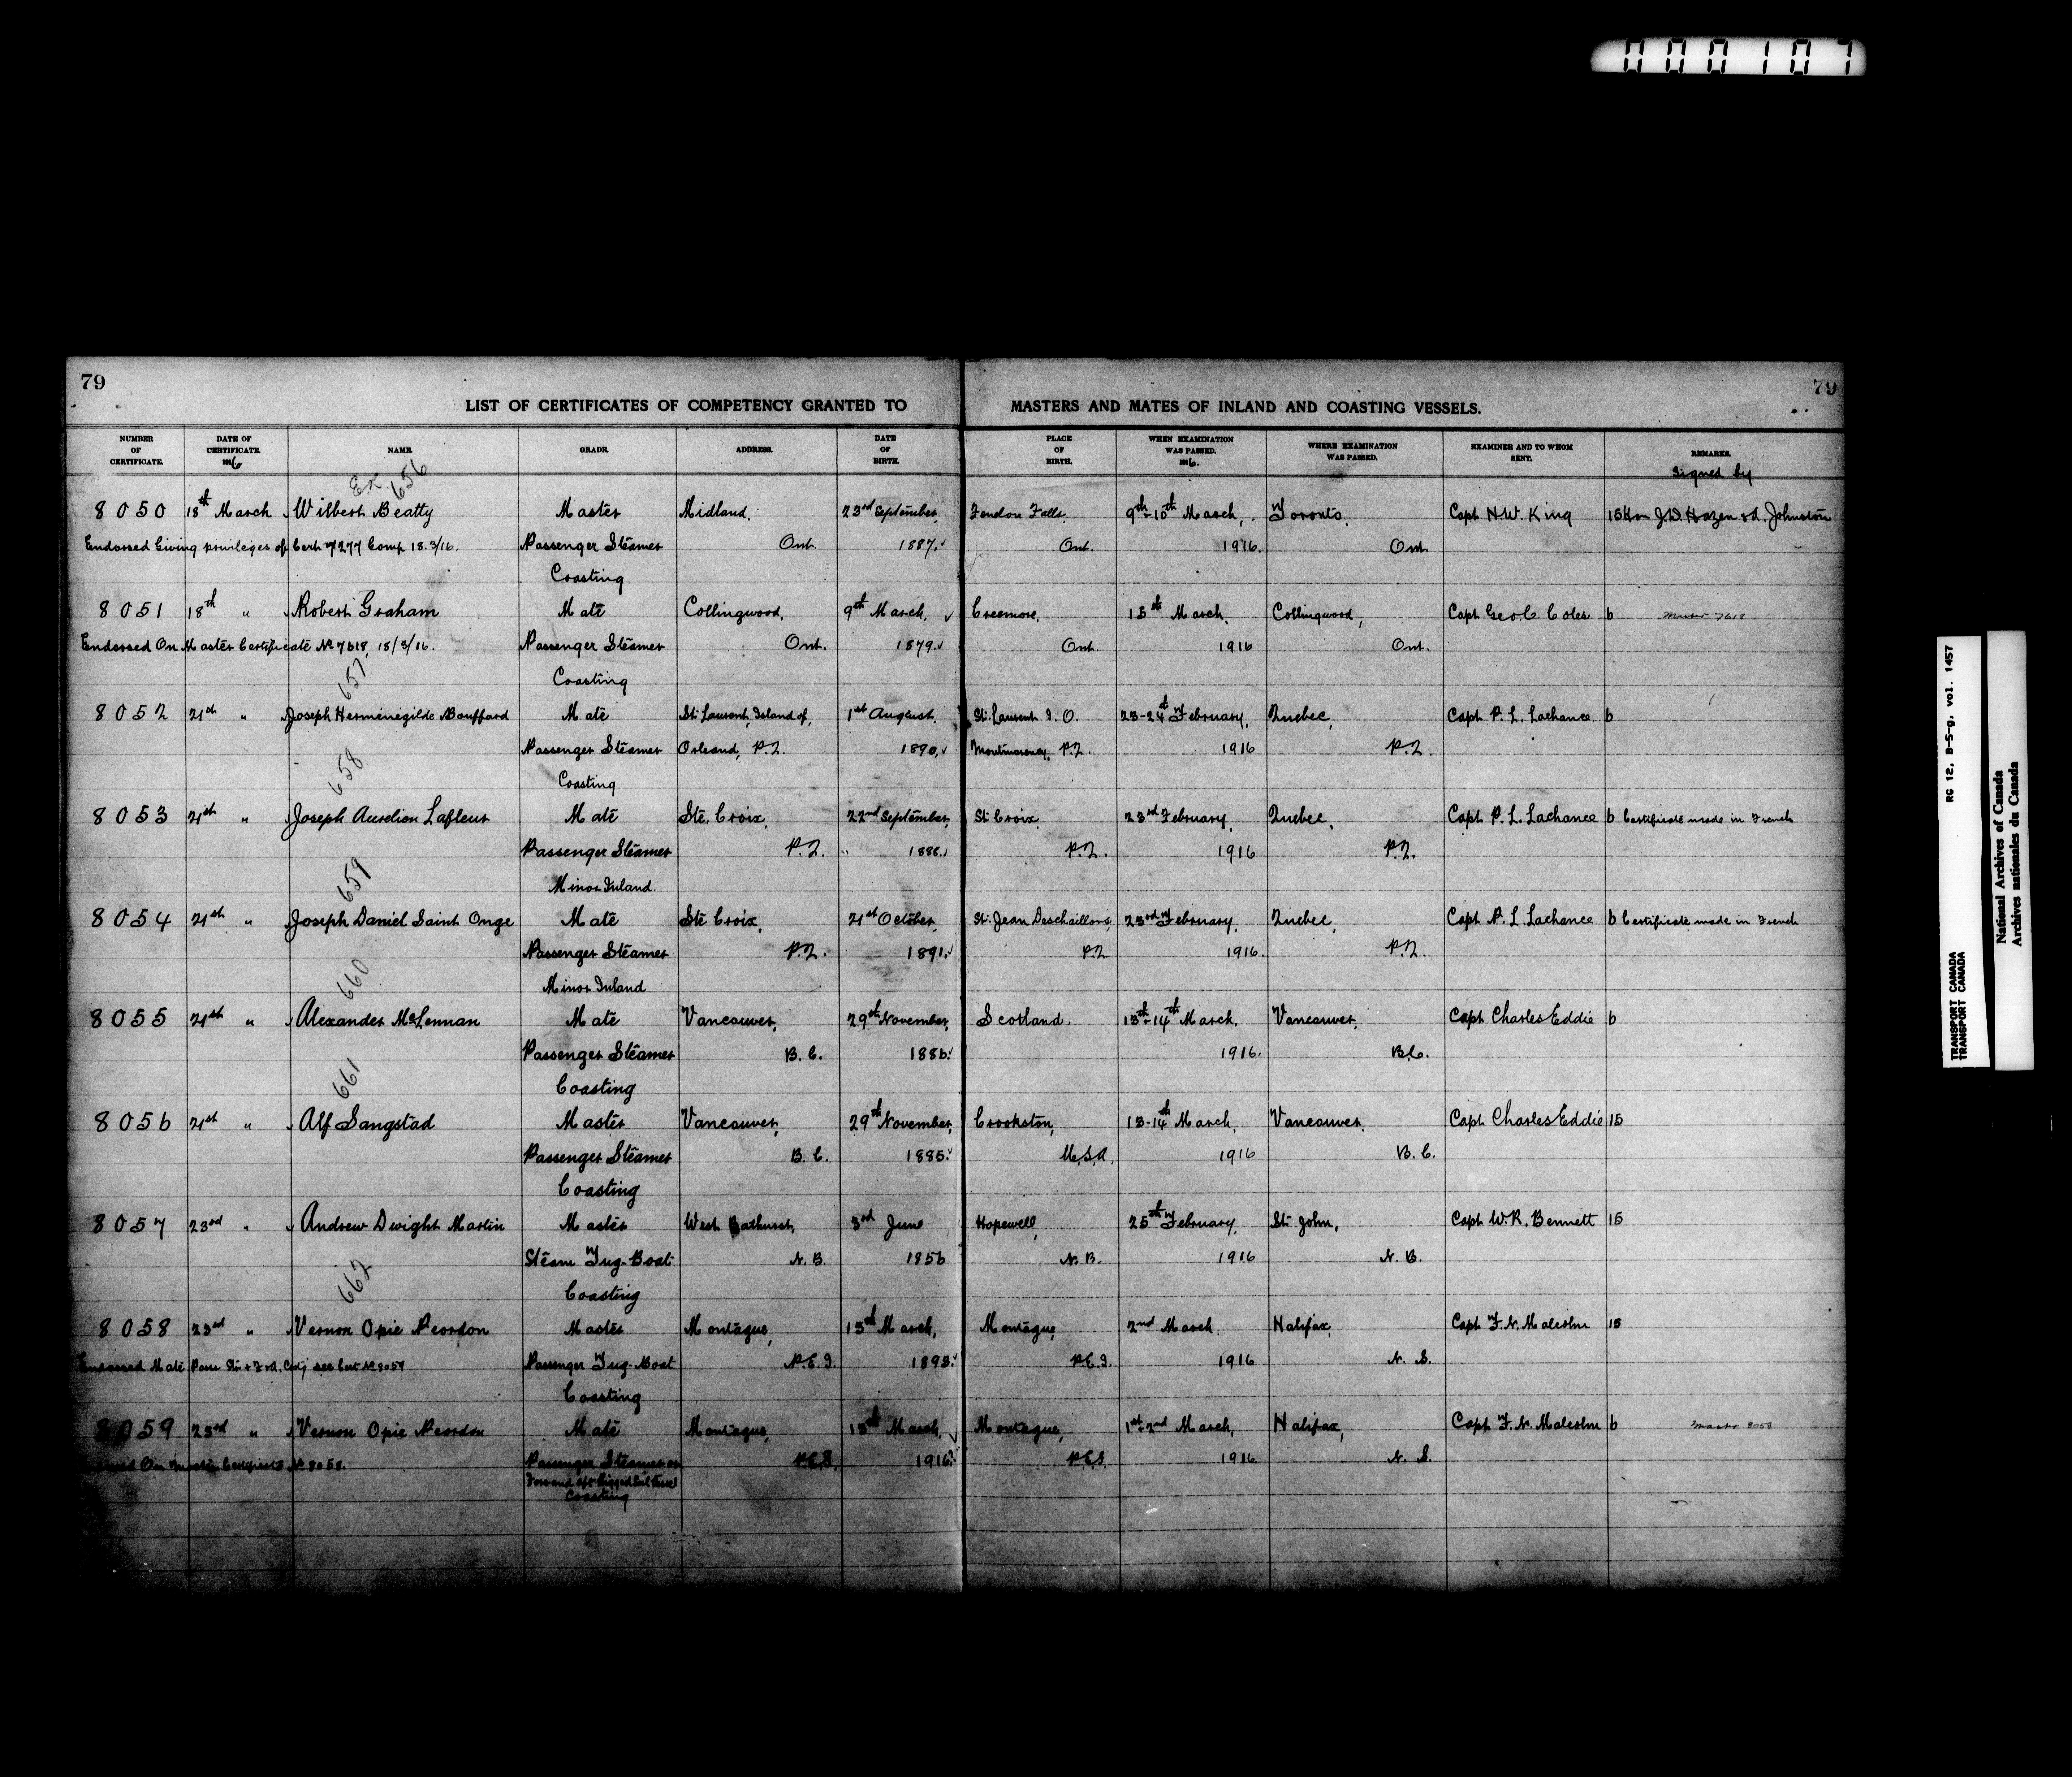 0 0 0 1 0 7
79
79
LIST OF CERTIFICATES OF COMPETENCY GRANTED TO MASTERS AND MATES OF INLAND AND COASTING VESSELS.
NUMBER OF CERTIFICATE. DATE OF CERTIFICATE. 1916 NAME. GRADE. ADDRESS. DATE OF BIRTH. PLACE OF BIRTH. WHEN EXAMINATION WAS PASSED. 1916. WHERE EXAMINATION WAS PASSED. EXAMINER AND TO WHOM SENT. REMARKS.
Signed by
Ex 656
8050 18th March Wilbert Beatty Master Midland, 23rd September, Fendon Falls, 9th-10th March, Toronto, Capt N.W. King 15 Hon J.D. Hazen & A. Johnston
Endorsed Giving privileges of Cert 7277 Comp 18.3/16. Passenger Steamer Ont. 1887. Ont. 1916. Ont.
Coasting
8051 18th " Robert Graham Mate Collingwood, 9th March, Creemore, 15th March, Collingwood, Capt Geo. C Coles 6 Master 7618
Endorsed On Master Certificate No 7618, 18/3/16. Passenger Steamer Ont. 1879. Ont. 1916 Ont.
657
Coasting
8052 21st " Joseph Herménégilde Bouffard Mate St. Laurent, Island of, 1st August, St. Laurent I. O. 23-24th February, Quebec, Capt P. L. Lachance 6
Passenger Steamer Orleans, P.Q. 1890, Montmorency, P.Q. 1916 P.Q.
658
Coasting
8053 21st " Joseph Aurelien Lafleur Mate Ste. Croix, 22nd September, St Croix, 23rd February, Quebec, Capt P. L. Lachance 6 Certificate made in French
Passenger Steamer P.Q. 1886. P.Q. 1916 P.Q.
659
Minor Inland
8054 21st " Joseph Daniel Saint Onge Mate Ste Croix, 21st October, St. Jean Deschaillons, 23rd February, Quebec, Capt P. L. Lachance 6 Certificate made in French
Passenger Steamer P.Q. 1891. P.Q. 1916. P.Q.
660
Minor Inland
8055 21st " Alexander McLennan Mate Vancouver, 29th November, Scotland. 13th-14th March, Vancouver, Capt Charles Eddie 6
Passenger Steamer B. C. 1886. 1916. B.C.
661
Coasting
8056 21st " Alf Sangstad Master Vancouver, 29th November, Crookston, 13-14th March, Vancouver, Capt Charles Eddie 15
Passenger Steamer B. C. 1885. U.S.A. 1916 B. C.
Coasting
8057 23rd " Andrew Dwight Martin Master West Bathurst, 3rd June Hopewell, 25th February, St. John, Capt W. R. Bennett 15
Steam Tug-Boat N. B. 1856 N. B. 1916 N. B.
662
Coasting
8058 23rd " Vernon Opie Reordon Master Montague, 15th March, Montague, 2nd March. Halifax, Capt F. N. Malcolm 15
Endorsed Mate Pass Str & F & A. Cstg see Cert No 8059 Passenger Tug-Boat P.E.I. 1893. P.E.I. 1916 N. S.
Coasting
8059 23rd " Vernon Opie Reordon Mate Montague, 15th March, Montague, 1st-2nd March, Halifax, Capt F. N. Malcolm 6 Master 8058
On Master Certificate No 8058. Passenger Steamer or P.E.I. 1916. P.E.I. 1916 N. S.
Fore and Aft Rigged Sail Vessel
Coasting
RG 12, B-5-g, vol. 1457
TRANSPORT CANADA
TRANSPORT CANADA
National Archives of Canada
Archives nationales du Canada